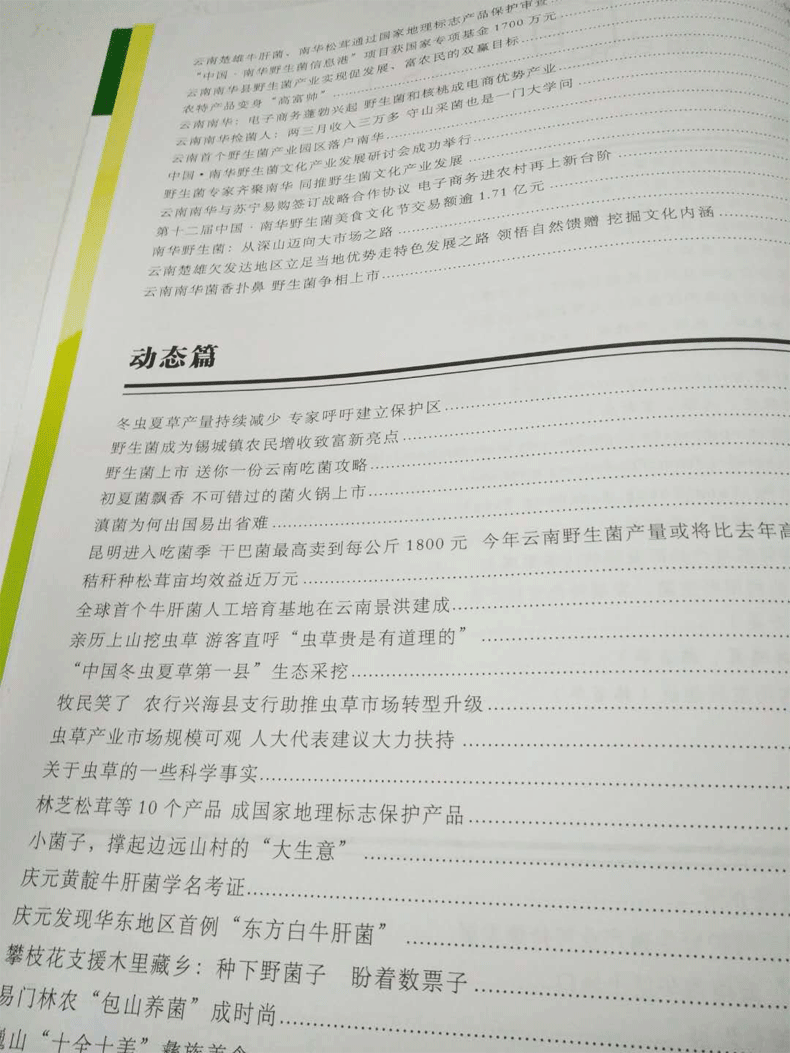 云南楚雄牛肝菌、南华松茸通过国家地理标志产品保护审查
“中国·南华野生菌信息港”项目获国家专项基金1700万元
云南南华县野生菌产业实现促发展、富农民的双赢目标
农特产品变身“高富帅”
云南南华：电子商务蓬勃兴起 野生菌和核桃成电商优势产业
云南南华捡菌人：两三月收入三万多 守山采菌也是一门大学问
云南首个野生菌产业园区落户南华
中国·南华野生菌文化产业发展研讨会成功举行
野生菌专家齐聚南华 同推野生菌文化产业发展
云南南华与苏宁易购签订战略合作协议 电子商务进农村再上新台阶
第十二届中国·南华野生菌美食文化节交易额逾1.71亿元
南华野生菌：从深山迈向大市场之路
云南楚雄欠发达地区立足当地优势走特色发展之路 领悟自然馈赠 挖掘文化内涵
云南南华菌香扑鼻 野生菌争相上市
动态篇
冬虫夏草产量持续减少 专家呼吁建立保护区
野生菌成为锡城镇农民增收致富新亮点
野生菌上市 送你一份云南吃菌攻略
初夏菌飘香 不可错过的菌火锅上市
滇菌为何出国易出省难
昆明进入吃菌季 干巴菌最高卖到每公斤1800元 今年云南野生菌产量或将比去年高
秸秆种松茸亩均效益近万元
全球首个牛肝菌人工培育基地在云南景洪建成
亲历上山挖虫草 游客直呼“虫草贵是有道理的”
“中国冬虫夏草第一县”生态采挖
牧民笑了 农行兴海县支行助推虫草市场转型升级
虫草产业市场规模可观 人大代表建议大力扶持
关于虫草的一些科学事实
林芝松茸等10个产品 成国家地理标志保护产品
小菌子，撑起边远山村的“大生意”
庆元黄靛牛肝菌学名考证
庆元发现华东地区首例“东方白牛肝菌”
攀枝花支援木里藏乡：种下野菌子 盼着数票子
易门林农“包山养菌”成时尚
巍山“十全十美”彝族美食